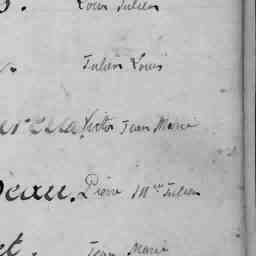 Louis Julien
Julien Louis
Victor Jean Marie
eau. Pierre Mie Julien
et. Jean Marie